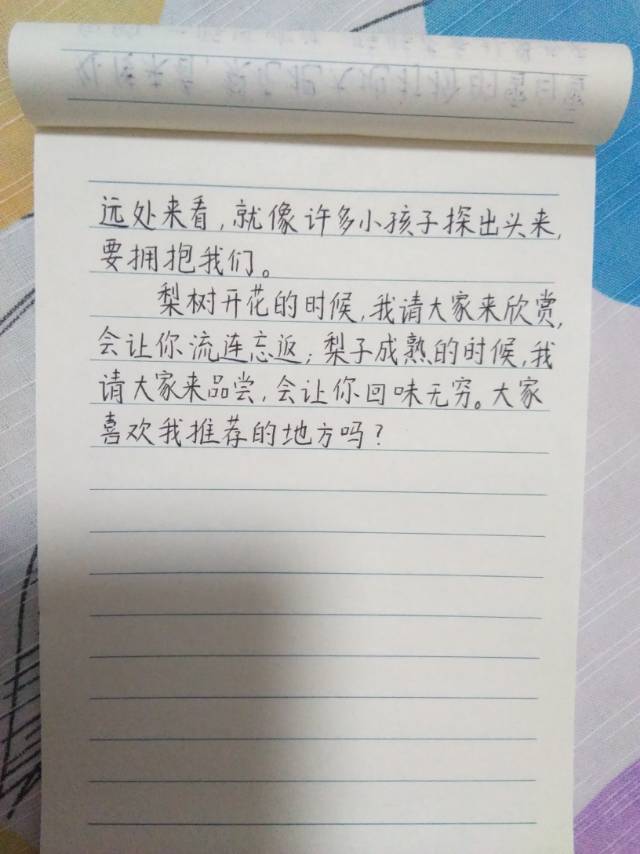 远处来看,就像许多小孩子探出头来,
要拥抱我们。
梨树开花的时候,我请大家来欣赏,
会让你流连忘返;梨子成熟的时候,我
请大家来品尝,会让你回味无穷。大家
喜欢我推荐的地方吗?